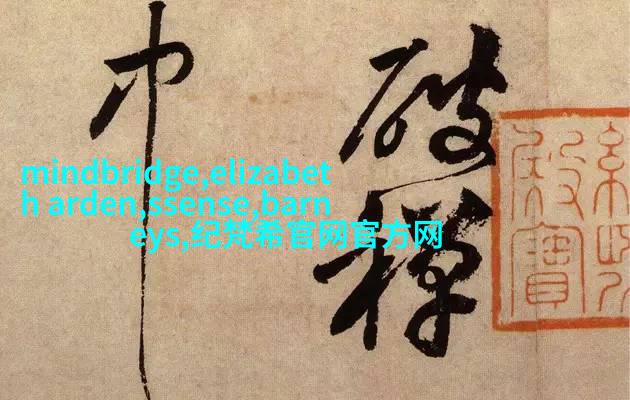 破禪
中
緝熙
殿寶
mindbridge,elizabet
h arden,ssense,barn
eys,纪梵希官网官方网